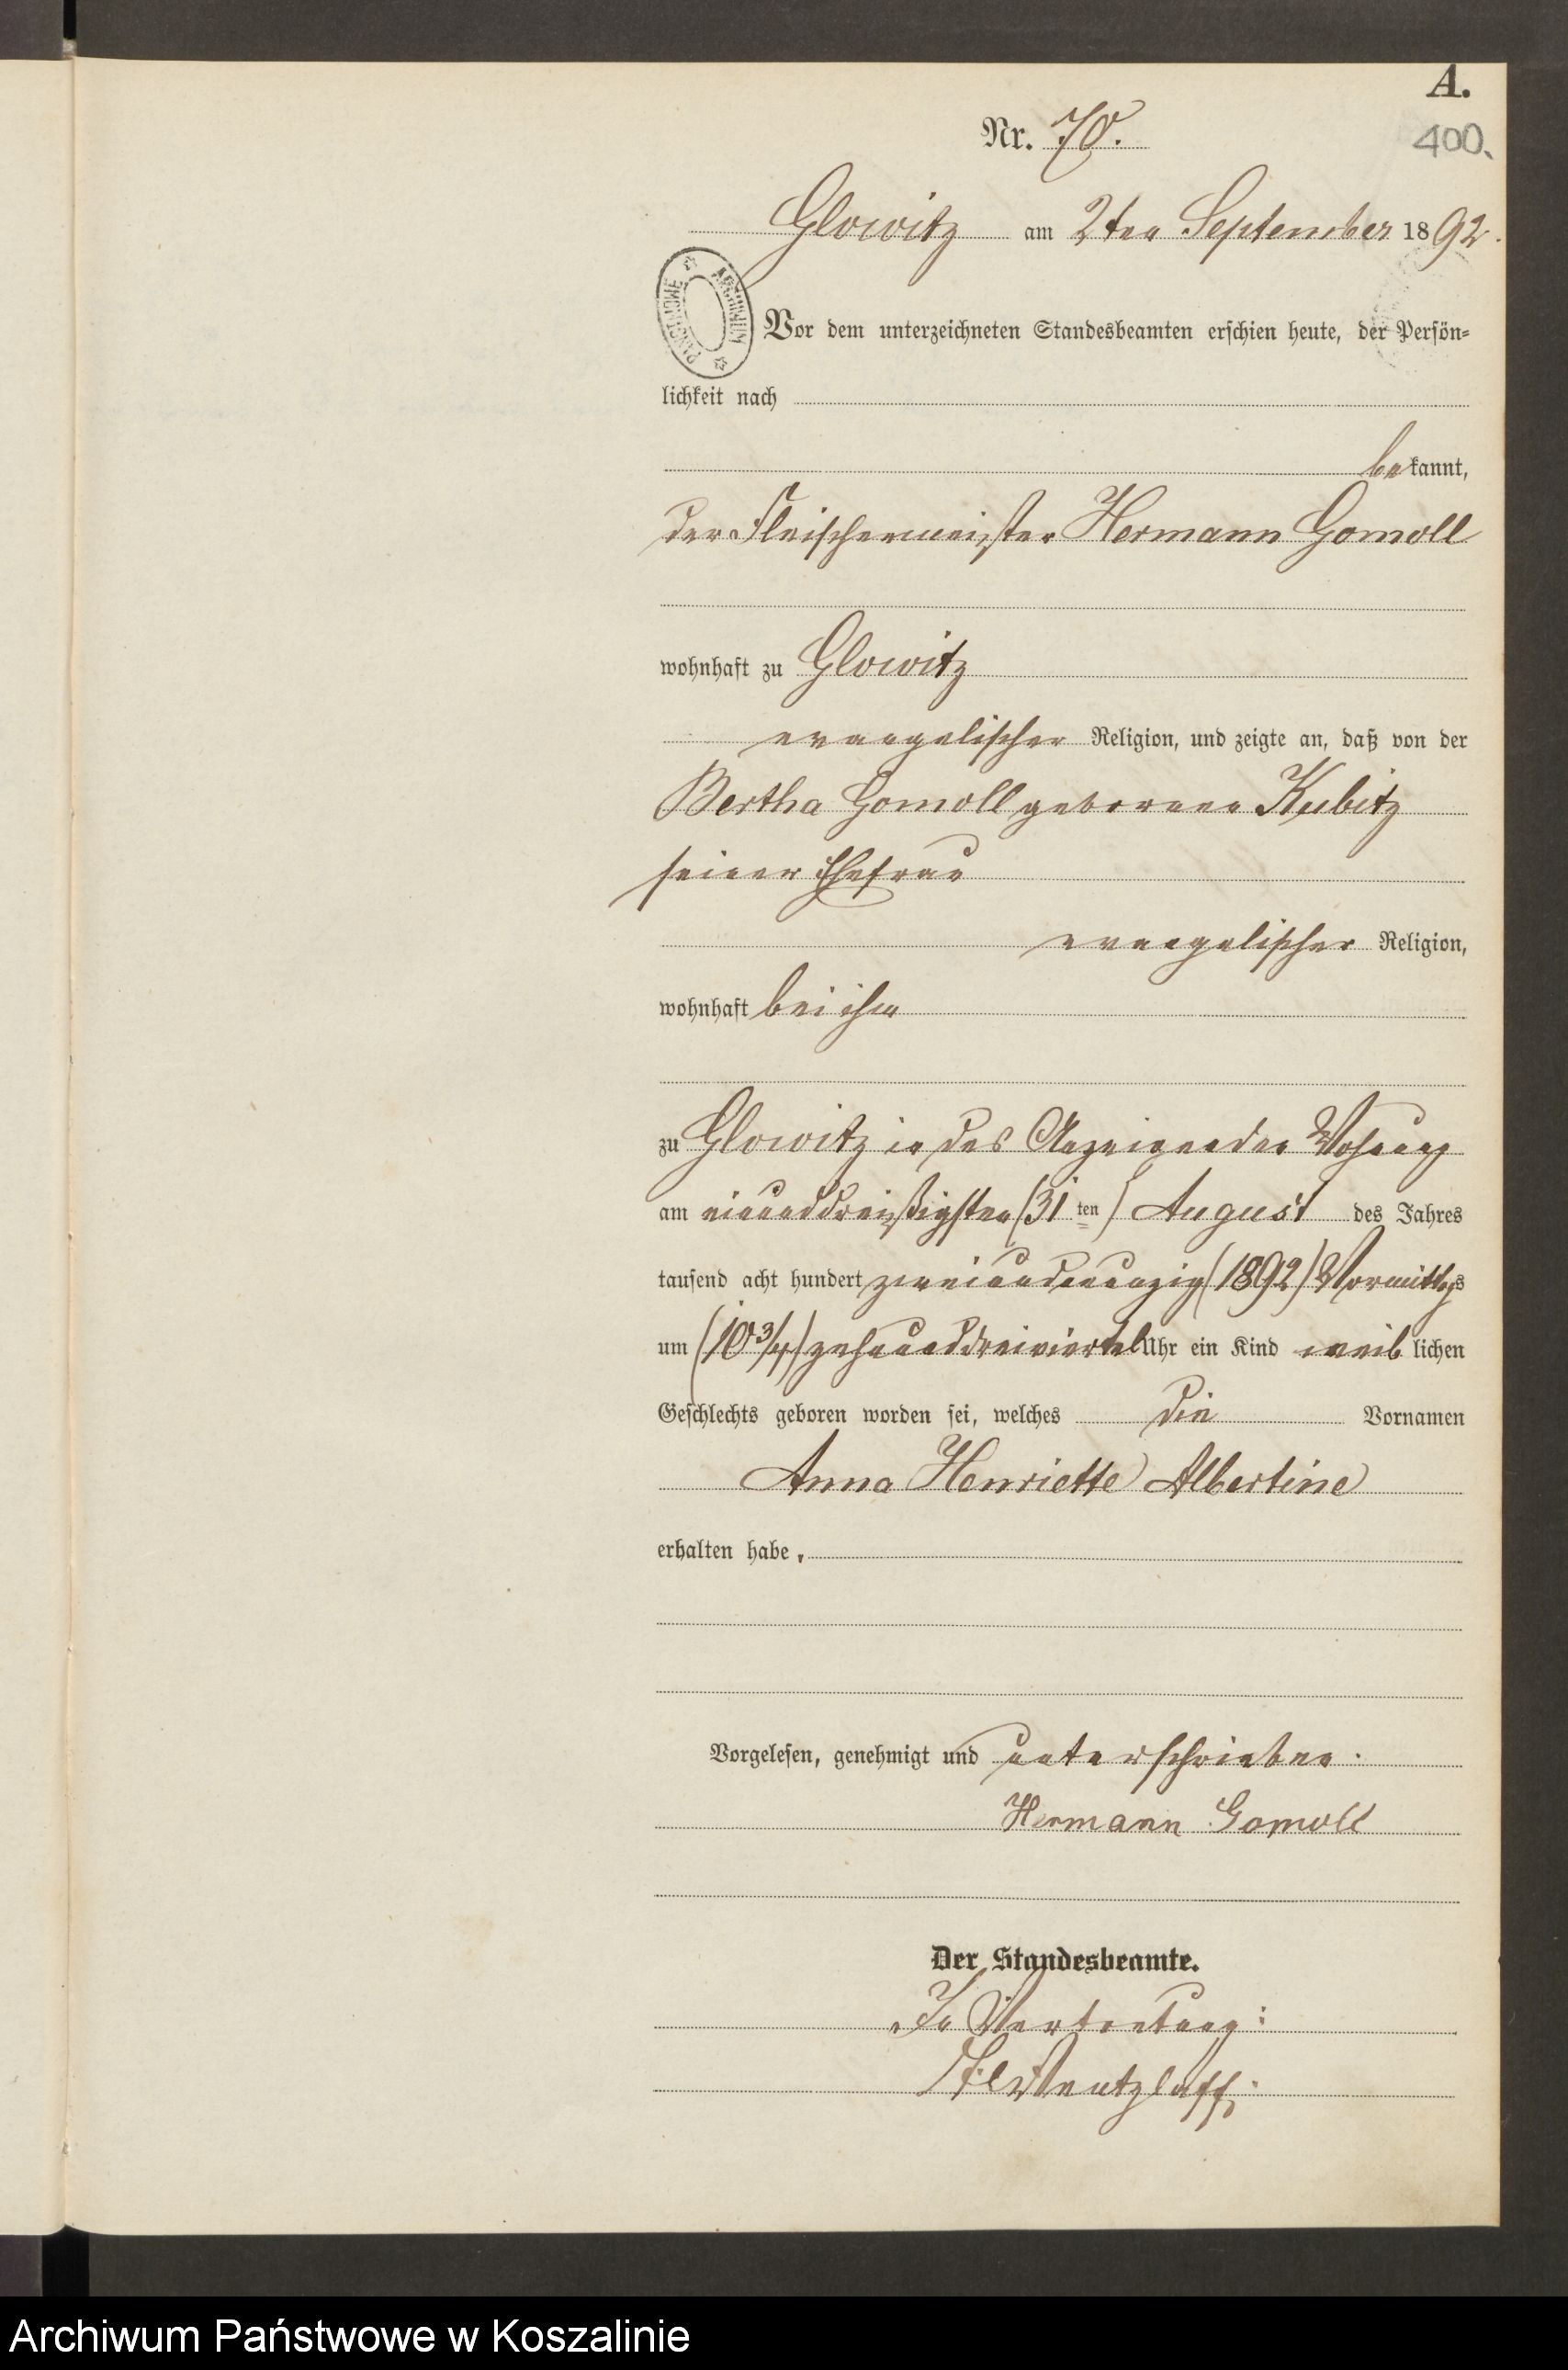 A.
Nr. 70.
400.
Glowitz am 2ten September 1892.
ARCHIWUM PAŃSTWOWE
Vor dem unterzeichneten Standesbeamten erschien heute, der Persön-
lichkeit nach
bekannt,
der Fleischermeister Hermann Gomoll
wohnhaft zu Glowitz
evangelischer Religion, und zeigte an, daß von der
Bertha Gomoll geborene Kubitz
seiner Ehefrau
evangelischer Religion,
wohnhaft bei ihm
zu Glowitz in des Anzeigenden Wohnung
am einunddreißigsten (31ten) August des Jahres
tausend acht hundert zweiundneunzig (1892) Vormittags
um (10 3/4) zehnunddreiviertel Uhr ein Kind weiblichen
Geschlechts geboren worden sei, welches die Vornamen
Anna Henriette Albertine
erhalten habe.
Vorgelesen, genehmigt und unterschrieben.
Hermann Gomoll
Der Standesbeamte.
In Vertretung:
Wentzlaff.
Archiwum Państwowe w Koszalinie